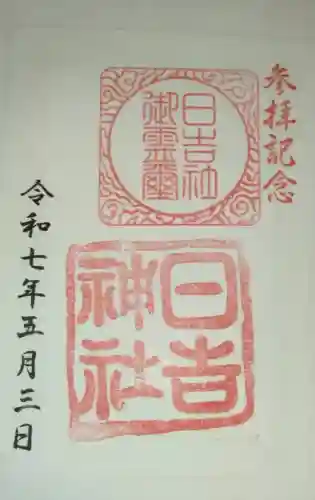 参拝記念
日吉社
御霊璽
日吉
神社
令和七年五月三日